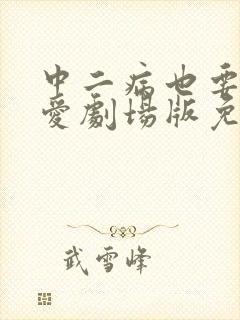 中二病也要
愛劇場版免
武雪峰